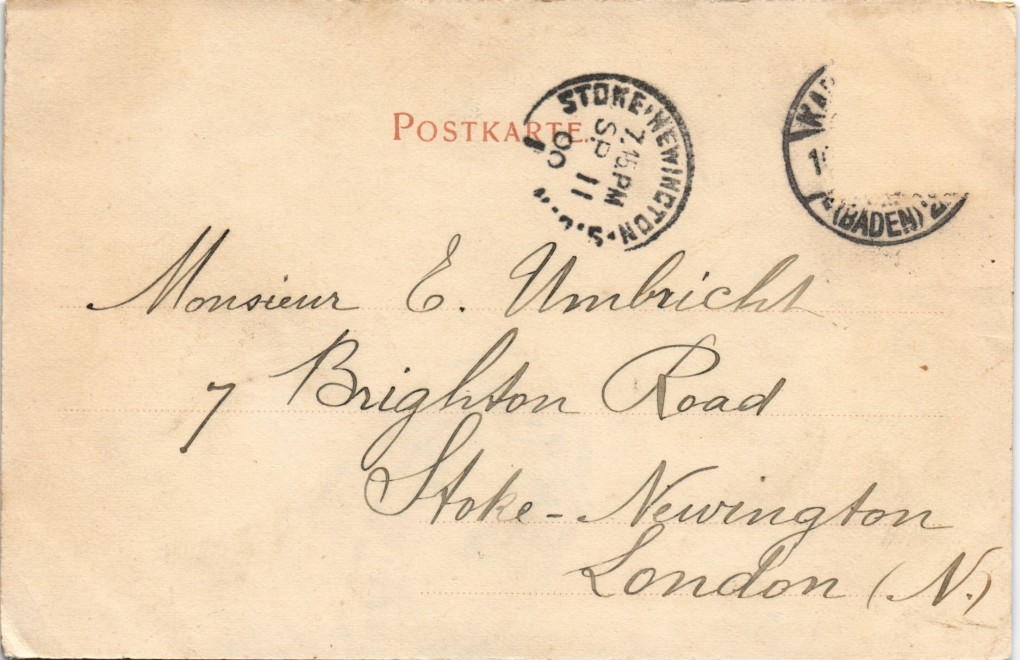 POSTKARTE.
STOKE·NEWINGTON·S.O.·N
7.15PM
SP 11
00
(BADEN)·2
Monsieur E. Umbricht
7 Brighton Road
Stoke-Newington
London (N.)